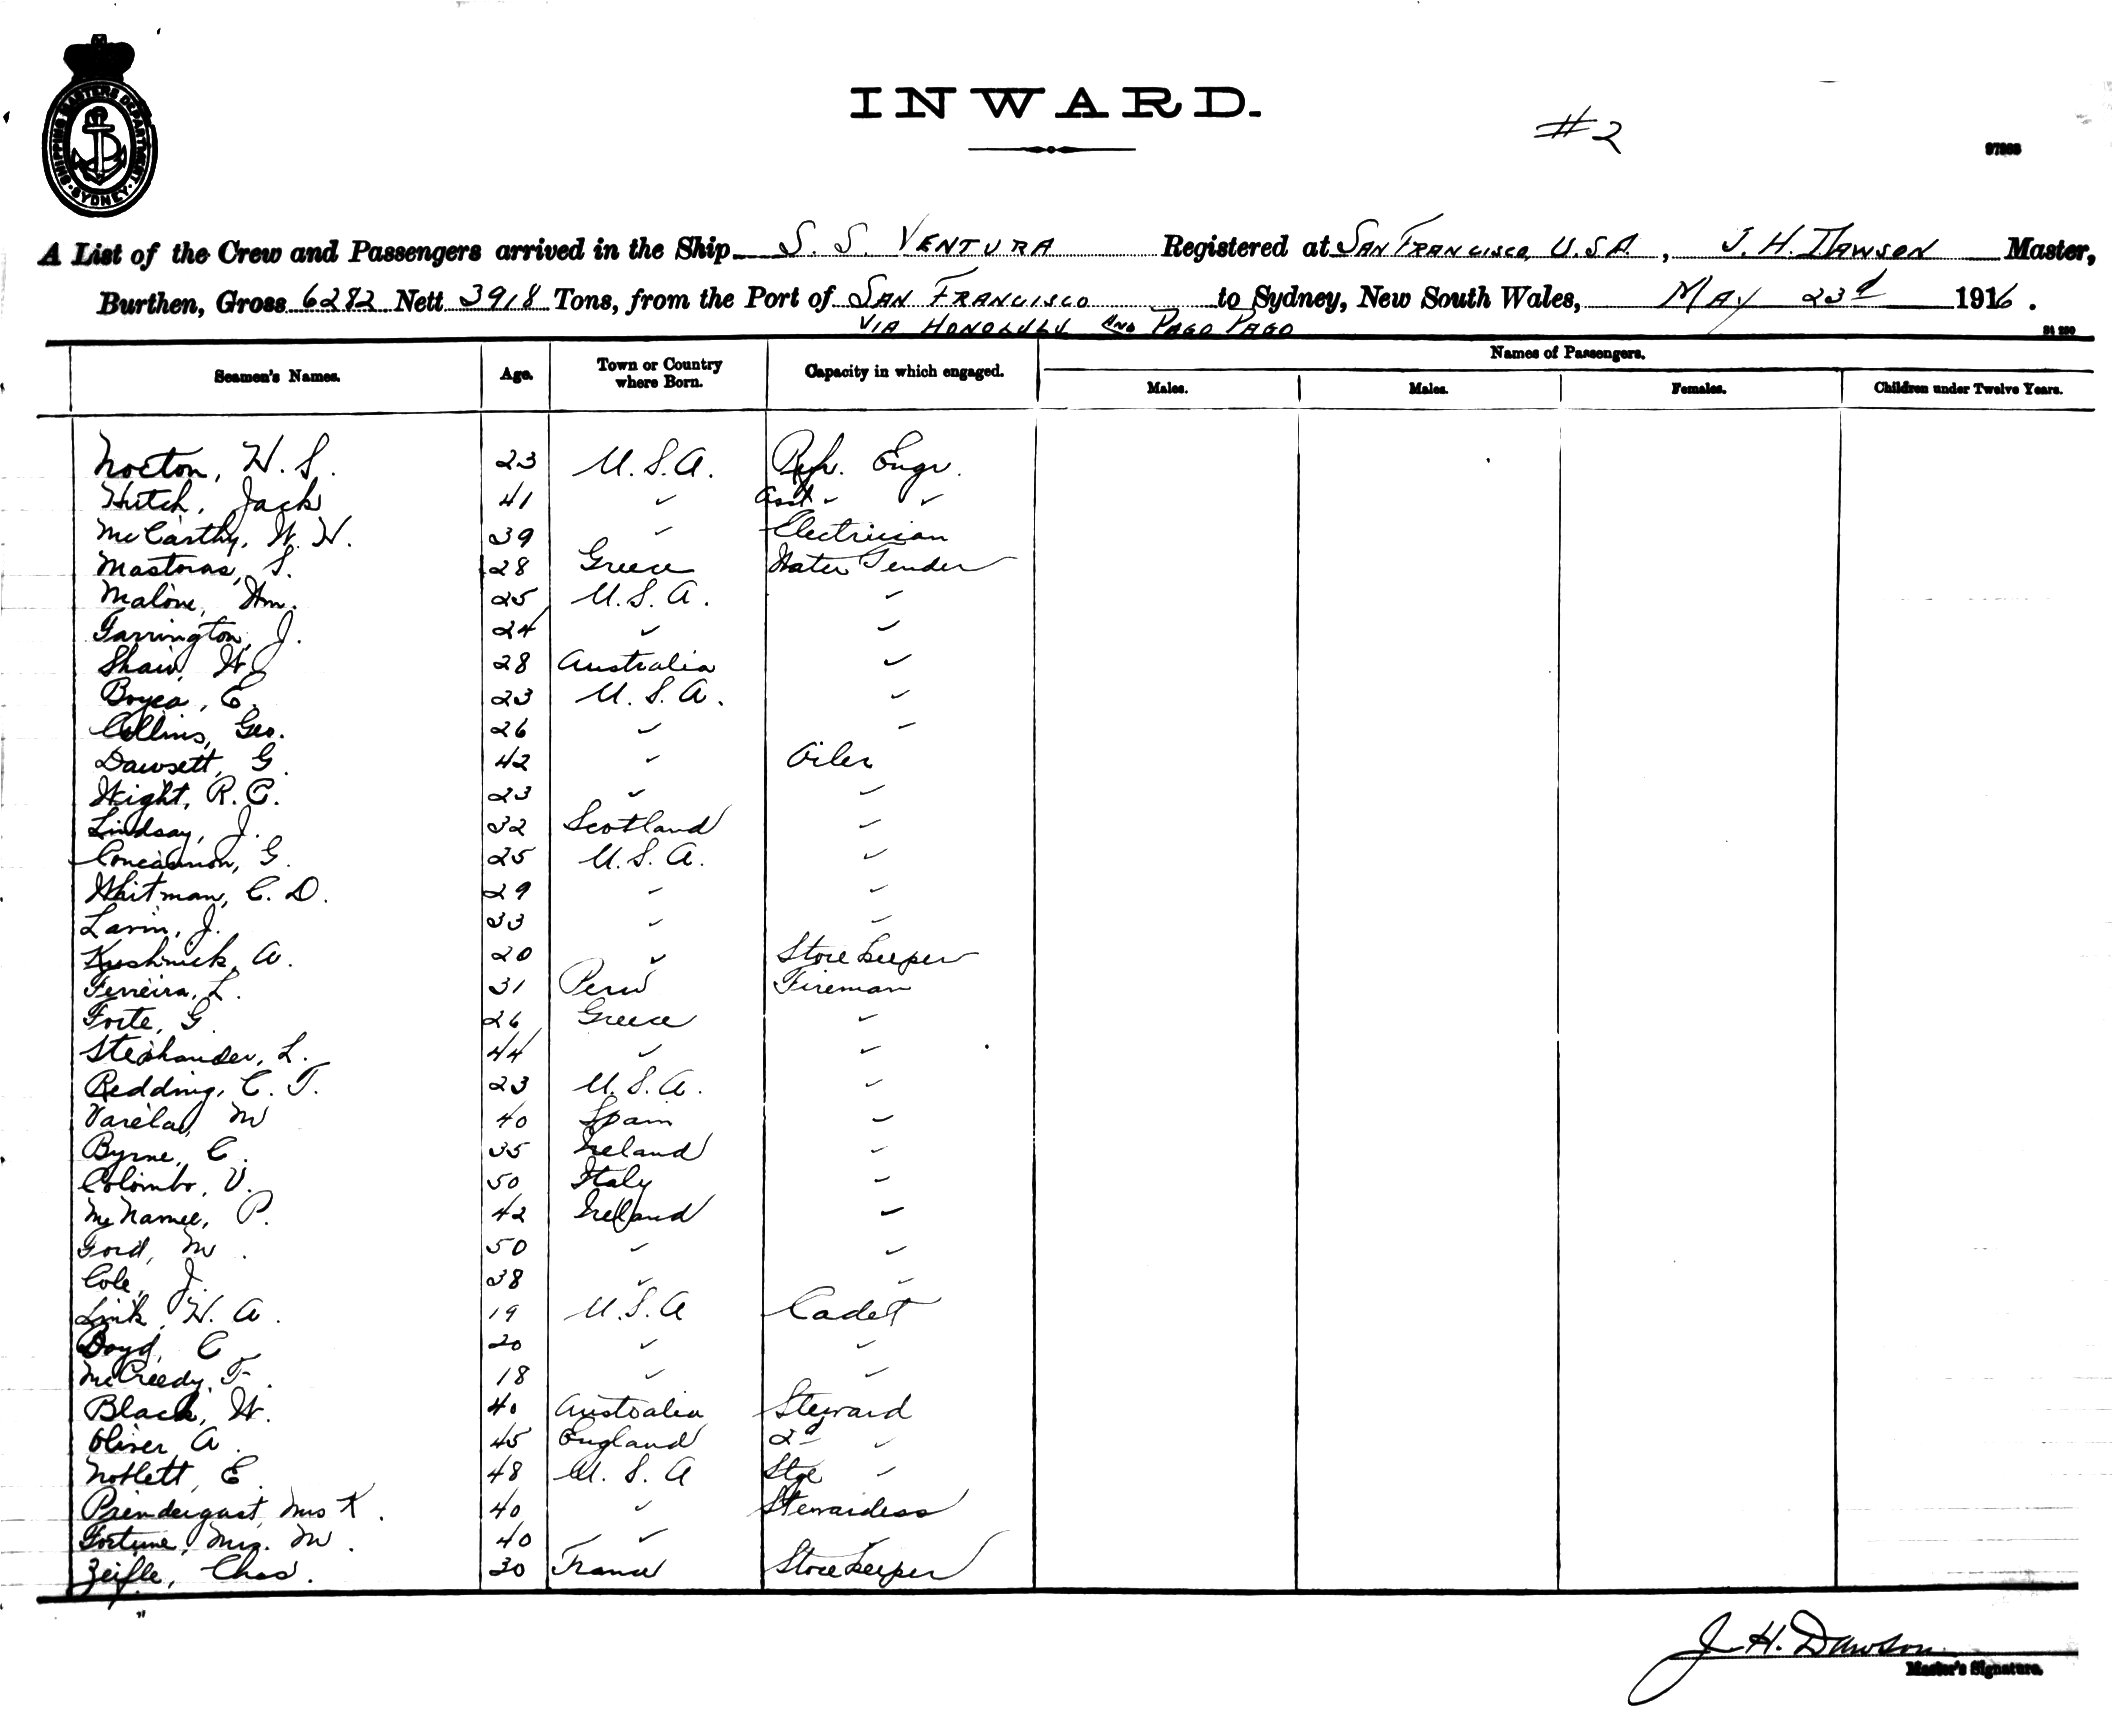 SHIPPING MASTERS DEPARTMENT
SYDNEY
INWARD.
#2
A List of the Crew and Passengers arrived in the Ship S. S. VENTURA Registered at SAN FRANCISCO, U.S.A. , J. H. DAWSON Master,
Burthen, Gross 6282 Nett 3918 Tons, from the Port of SAN FRANCISCO to Sydney, New South Wales, MAY 23d 1916.
VIA HONOLULU AND PAGO PAGO
Names of Passengers.
Seamen's Names. Age. Town or Country where Born. Capacity in which engaged. Males. Males. Females. Children under Twelve Years.
Norton, W. S. 23 U.S.A. Refr. Engr.
Hutch, Jack 41 " Asst " "
McCarthy, W. H. 39 " Electrician
Mastoras, S. 28 Greece Water Tender
Malone, Wm. 25 U.S.A. "
Farrington, J. 24 " "
Shaw, W. 28 Australia "
Boyea, E. 23 U.S.A. "
Collins, Geo. 26 " "
Dawsett, G. 42 " Oiler
Wight, R. C. 23 " "
Lindsay, J. 32 Scotland "
Concannon, G. 25 U.S.A. "
Whitman, C. D. 29 " "
Larin, J. 33 " "
Kushnick, A. 20 " Storekeeper
Ferreira, L. 31 Peru Fireman
Forte, G. 26 Greece "
L. 44 " "
Redding, C. T. 23 U.S.A. "
Varela, M 40 Spain "
Byrne, C. 35 Ireland "
Colombo, V. 50 Italy "
McNamee, P. 42 Ireland "
Ford, M. 50 " "
Cole, J. 38 " "
Link, W. A. 19 U.S.A Cadet
Boyd, C 20 " "
McCreedy, F. 18 " "
Black, W. 40 Australia Steward
Oliver A. 45 England 2d "
Noblett, E. 48 U.S.A Stge "
Prendergast, Mrs K. 40 " Stewardess
Fortune, Mrs. M. 40 " "
Zeifle, Chas. 30 France Storekeeper
J. H. Dawson
Master's Signature.